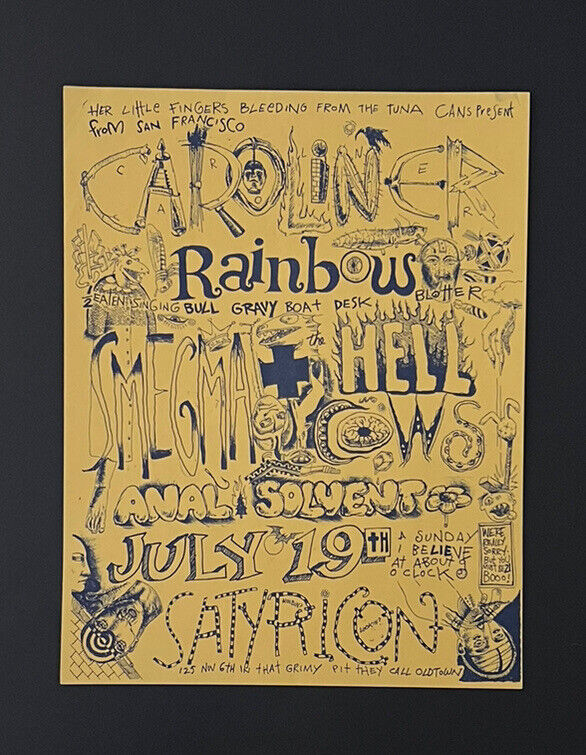 HER LITTLE FINGERS BLEEDING FROM THE TUNA CANS PRESENT
FROM SAN FRANCISCO
CAROLINER
CAROLINER
Rainbow
1/2 EATEN SINGING BULL GRAVY BOAT DESK BLOTTER
SMEGMA + the HELL
COWS
ANAL SOLVENT
JULY 19TH
A SUNDAY
I BELIEVE
AT ABOUT 9
O'CLOCK
WE'RE
REALLY
SORRY
BUT YOU
MUST BE 21
BOOO!
SATYRICON
125 NW 6TH IN THAT GRIMY PIT THEY CALL OLDTOWN